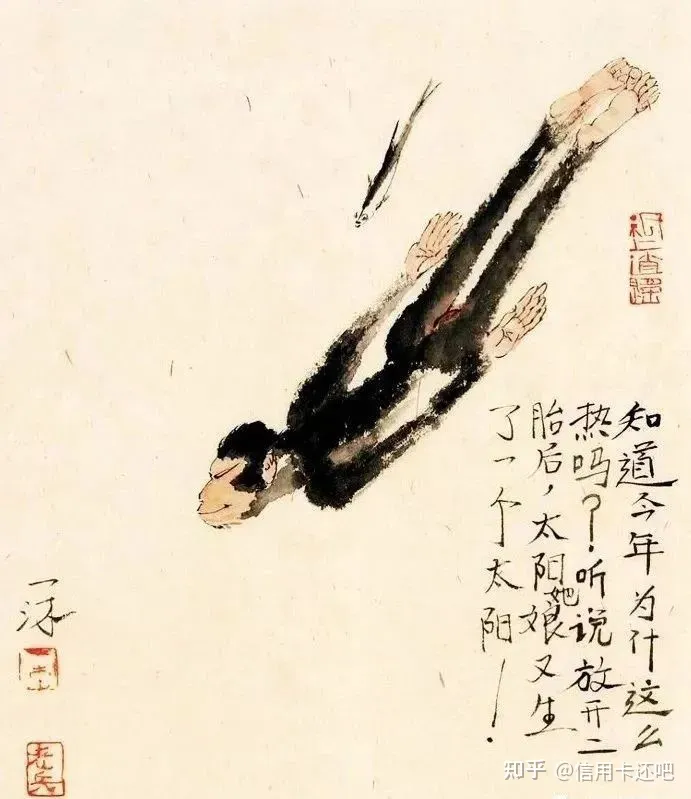 知道今年为什这么
热吗？听说放开二
胎后，太阳她娘又生
了一个太阳！
知乎 @信用卡还吧